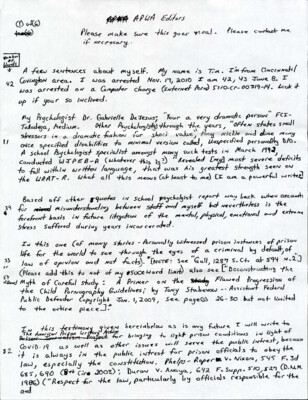 (1) of(6)
APWA Editors
Please make sure this goes viral. Please contact me
if necessary.
A few sentences about myself. My name is Tim. I'm from Cincinnati/
42 Covington area. I was arrested Nov. 17, 2010 I am 42, 43 June 8, I
was arrested on a Computer charge (Internet Area) Look it
up if your so inclined.
My Psychologist Dr. Gabrielle DeJesus; "Your a very dramatic person" FCI-
Talladega, Medium. Other Psychologists through the years, "Often states small
stressors in a dramatic fashion for shock value," Any middle and done many
once specified disabilities to minimal version cited, unexpected personality b/o.
A school Psychologist specialist amongst many such tests in March 1992,
conducted WJPEB-R (whatever this is?) "Revealed [my] most severe deficits
to fall within written language, that was his greatest strength on
the WRAT-R. What all this means (at least to me) I am a powerful writer!
Based off other quotes in school psychologist report way back when accounts
for misunderstandings between staff and myself but nevertheless is the
forefront basis in future litigation of the mental, physical, emotional and extreme
stress suffered during years incarcerated.
In this one (of many stories - Personally witnessed prison instances of prison
life for the world to see through the eyes of a criminal by default, of
law of opinion and not facts. [NOTE: see Gall, 128 S.Ct. at 594 N.2]
(Please add this to not of my Hard Land) also see [Deconstructing the
Myth of Careful Study: A Primer on the Flawed Progression of
the Child Pornography Guidelines; by Troy Stabenow - Assistant Federal
Public Defender Copyright Jan. 1, 2009, see page(s) 26-30 but not limited
to the entire piece.]
This testimony given hereinbelow as is any future I will write to
for bringing to light prison conditions in light of
Covid-19 as well as other issues will serve the public intrest, because
32 it is always in the public intrest for prison officials to obey the
law, especially the constitution, Phelps-Roper v. Nixon, 545 F.3d
685, 690 (8th Cir. 2008); Duran v. Anaya, 642 F.Supp. 510, 527 (D.N.M.
1986) ("Respect for the law, particularly by officials responsible for the